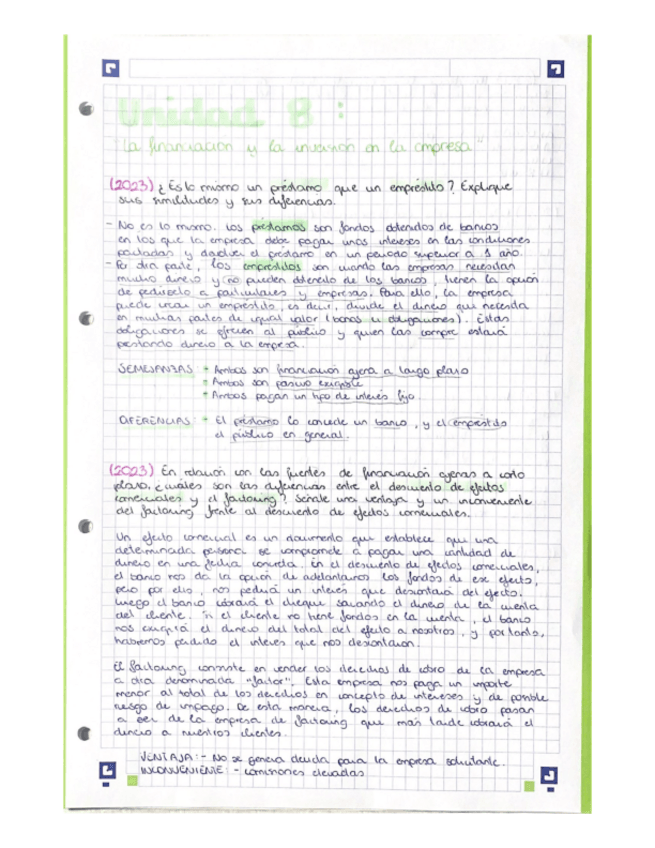 Unidad 8:
"La financiación y la inversión en la empresa"
(2023) ¿Es lo mismo un préstamo que un empréstito? Explique
sus similitudes y sus diferencias.
- No es lo mismo. Los préstamos son fondos obtenidos de bancos
en los que la empresa debe pagar unos intereses en las condiciones
pactadas y devolver el préstamo en un periodo superior a 1 año.
- Por otra parte, los empréstitos son cuando las empresas necesitan
mucho dinero y no pueden obtenerlo de los bancos, tienen la opción
de pedírselo a particulares y empresas. Para ello, la empresa
puede crear un empréstito, es decir, divide el dinero que necesita
en muchas partes de igual valor (bonos u obligaciones). Estas
obligaciones se ofrecen al público y quien las compre estará
prestando dinero a la empresa.
SEMEJANZAS: + Ambos son financiación ajena a largo plazo
+ Ambos son pasivo exigible
+ Ambos pagan un tipo de interés fijo.
DIFERENCIAS: + El préstamo lo concede un banco, y el empréstito
el público en general.
(2023) En relación con las fuentes de financiación ajenas a corto
plazo, ¿cuáles son las diferencias entre el descuento de efectos
comerciales y el factoring? Señale una ventaja y un inconveniente
del factoring frente al descuento de efectos comerciales.
Un efecto comercial es un documento que establece que una
determinada persona se compromete a pagar una cantidad de
dinero en una fecha concreta. En el descuento de efectos comerciales,
el banco nos da la opción de adelantarnos los fondos de ese efecto,
pero por ello, nos pedirá un interés que descontará del efecto.
Luego el banco cobrará el cheque sacando el dinero de la cuenta
del cliente. Si el cliente no tiene fondos en la cuenta, el banco
nos exigirá el dinero del total del efecto a nosotros, y por tanto,
habremos perdido el interés que nos descontaron.
El factoring consiste en vender los derechos de cobro de la empresa
a otra denominada "factor". Esta empresa nos paga un importe
menor al total de los derechos en concepto de intereses y de posible
riesgo de impago. De esta manera, los derechos de cobro pasan
a ser de la empresa de factoring que más tarde cobrará el
dinero a nuestros clientes.
VENTAJA: - No se genera deuda para la empresa solicitante.
INCONVENIENTE: - Comisiones elevadas